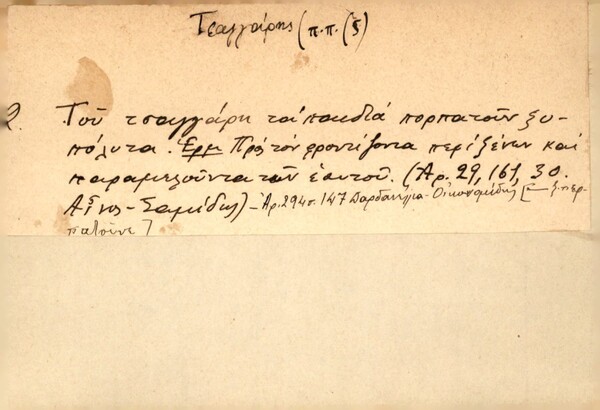 Τσαγγάρης (π.π. (ξ)
2. Τοῦ τσαγγάρη τὰ παιδιά πορπατοῦν ξυ-
πόλυτα. Ἑρμ Πρὸς τὸν φροντίζοντα περὶ ξένων καὶ
παραμελοῦντα τῶν ἑαυτοῦ. (Ἀρ. 29, 161, 30.
Αἶνος - Σαμίδης) - Ἀρ. 294 σ. 147 Δαρδανέλλια - Οἰκονομίδης [
πατοῦνε]